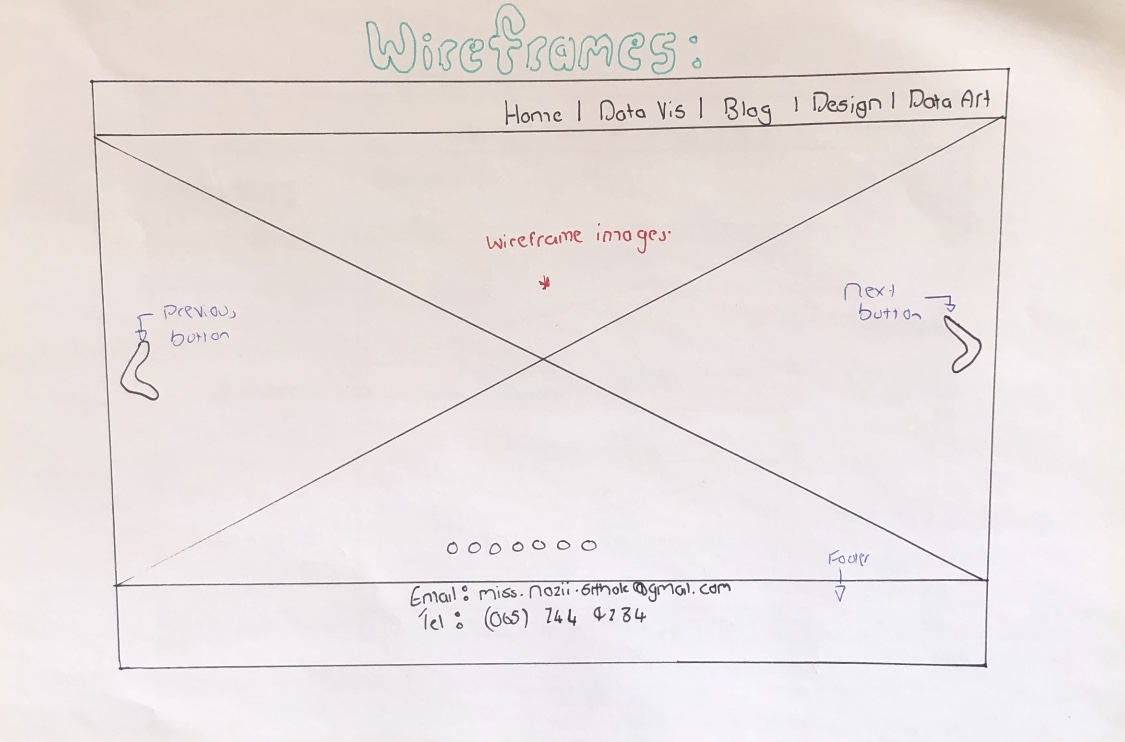 Wireframes:
Home | Data Vis | Blog | Design | Data Art
Wireframe images.
*
Previous
button
next
button
Footer
Email: miss.nozii.sithole@gmail.com
Tel: (065) 744